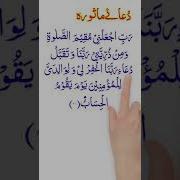 دُعائے ماثورہ
رَبِّ اجْعَلْنِيْ مُقِيْمَ الصَّلٰوةِ
وَمِنْ ذُرِّيَّتِيْ رَبَّنَا وَتَقَبَّلْ
دُعَاءِ رَبَّنَا اغْفِرْ لِيْ وَلِوَالِدَيَّ
وَلِلْمُؤْمِنِيْنَ يَوْمَ يَقُوْمُ
الْحِسَابُ